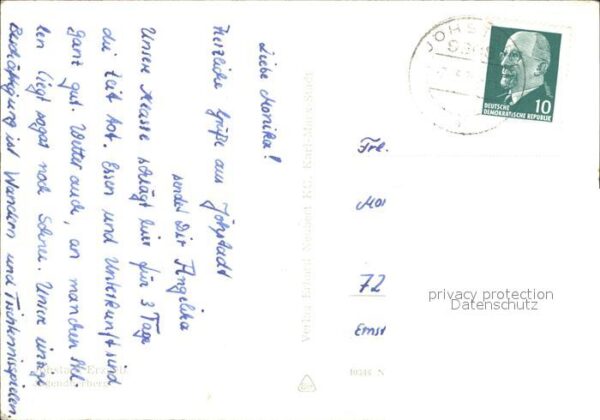 Liebe Monika!
Herzliche Grüße aus Jöhstadt
sendet Dir Angelika
Unsere Klasse schlägt hier für 3 Tage
die Zeit tot. Essen und Unterkunft sind
ganz gut. Wetter auch, an manchen Stel
len liegt sogar noch Schnee. Unsere einzige
Beschäftigung ist Wandern und Tischtennisspielen
JÖHST
DEUTSCHE
DEMOKRATISCHE REPUBLIK
10
Frl.
72
Ernst
privacy protection
Datenschutz
Verlag Erhard Neubert KG, Karl-Marx-Stadt
Jugendherberge